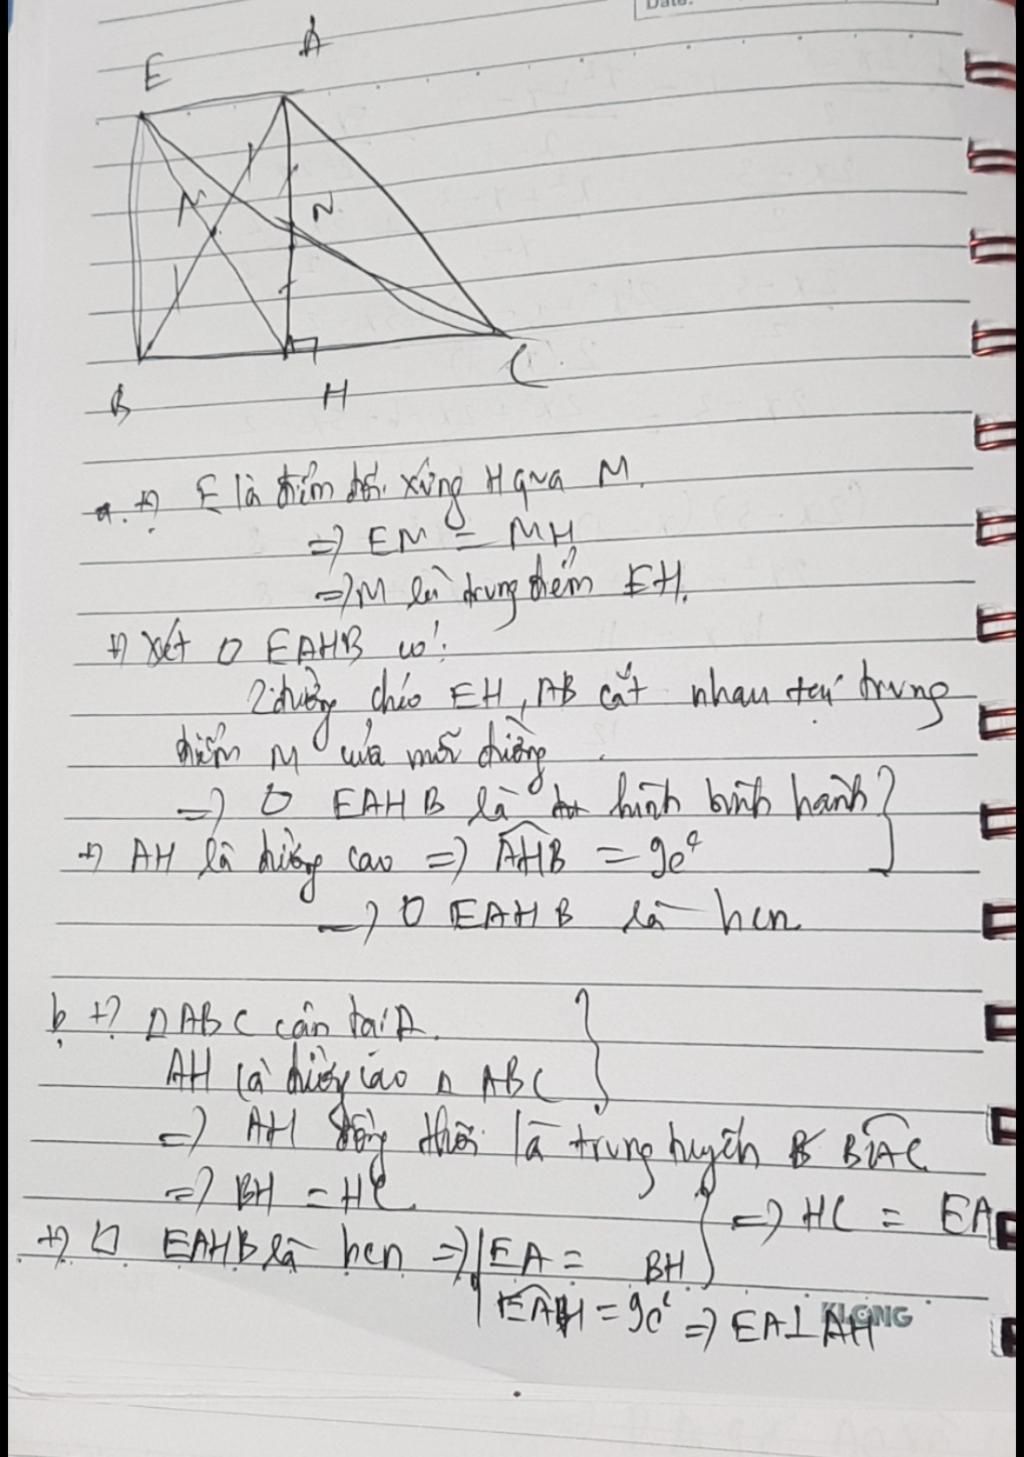 Date:
E A
N N
B H C
a. +) E là điểm đối xứng H qua M.
=> EM = MH
=> M là trung điểm EH.
+) Xét □ EAHB có:
2 đường chéo EH, AB cắt nhau tại trung
điểm M của mỗi đường.
=> □ EAHB là hình bình hành }
+) AH là đường cao => AHB = 90°
=> □ EAHB là hcn
b, +) △ABC cân tại A. }
AH là đường cao △ ABC
=> AH đồng thời là trung tuyến BAC
=> BH = HC } => HC = EA
+) □ EAHB là hcn => | EA = BH
EAH = 90° => EA ⊥ AH
KLONG